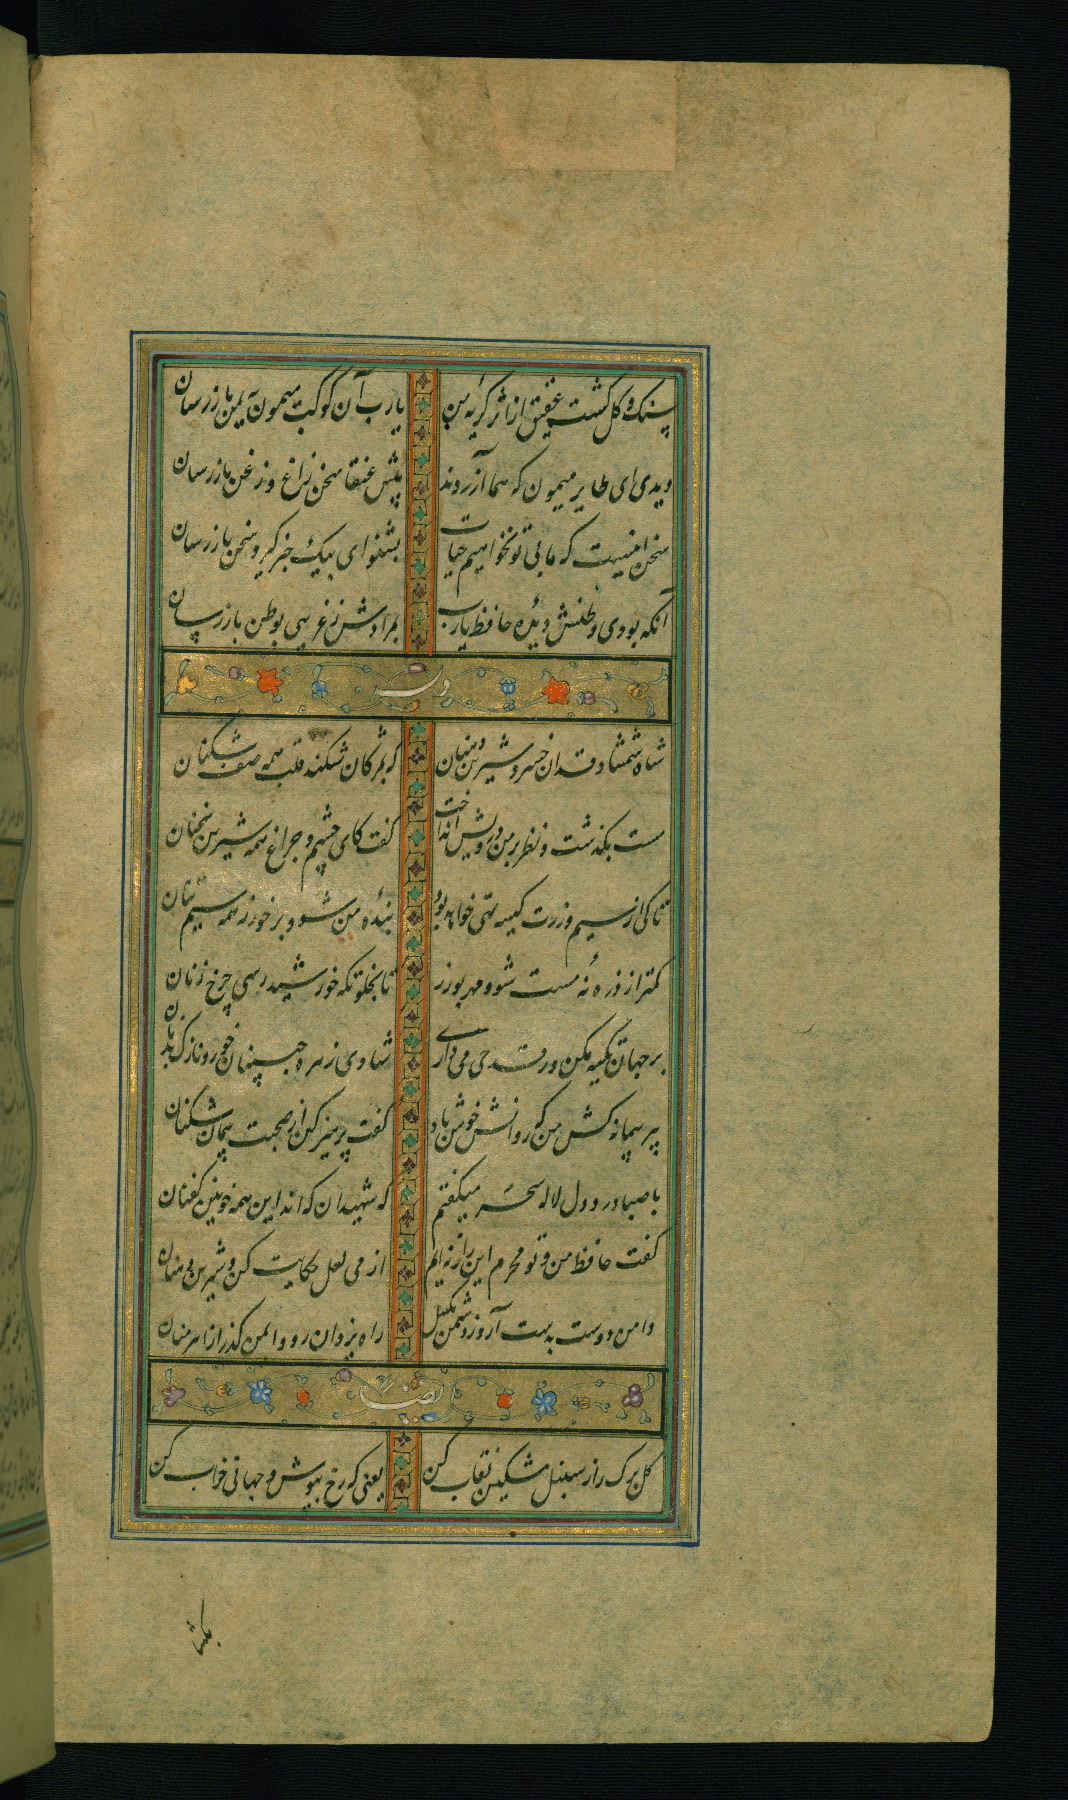 سنک و کل کشت عقیق از اثر کریه من
یارب آن کوکب میمون بیمن بازرسان
دیدی ای طایر میمون که هما آزردند
پیش عنقا سخن زاغ و زغن بازرسان
سخن اینست که ما بی تو نخواهیم حیات
بشنو ای پیک خبر کیر و سخن بازرسان
آنکه بودی وطنش دیدهٔ حافظ یارب
بمرادش ز غریبی بوطن بازرسان
شاه شمشاد قدان خسرو شیرین دهنان
که بمژکان شکند قلب همه صف شکنان
مست بکذشت و نظر بر من درویش انداخت
کفت کای چشم و چراغ همه شیرین سخنان
تا کی از سیم و زرت کیسه تهی خواهد بود
بندهٔ من شو و برخور ز همه سیم تنان
کمتر از ذره نهٔ مست شو و مهر بورز
تا بخلوتکه خورشید رسی چرخ زنان
بر جهان تکیه مکن ور قدحی می داری
شادی زهره جبینان خور و نازک بدنان
پیر پیمانه کش من که روانش خوش باد
کفت پرهیز کن از صحبت پیمان شکنان
با صبا در دول لاله سحر میکفتم
که شهیدان که اند این همه خونین کفنان
کفت حافظ من و تو محرم این راز نه ایم
از می لعل حکایت کن و شیرین دهنان
دامن دوست بدست آر و ز دشمن بکسل
راه یزدان رو و ایمن کذر از اهرمنان
ایضا
کلبرک را ز سنبل مشکین نقاب کن
یعنی که رخ بپوش و جهانی خراب کن
بکشا